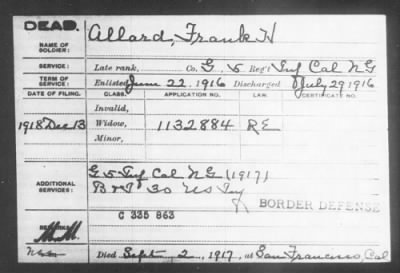 DEAD.
NAME OF SOLDIER: Allard, Frank H
SERVICE: Late rank, Co. G, 5 Reg't Inf Cal NG
TERM OF SERVICE: Enlisted June 22, 1916 Discharged July 29 1916
DATE OF FILING. CLASS. APPLICATION NO. LAW. CERTIFICATE NO.
Invalid,
1918 Dec 13 Widow, 1132884 RE
Minor,
G 5 Inf Cal NG (1917)
ADDITIONAL SERVICES: 30 US Inf
BORDER DEFENSE
C 335 863
REMARKS:
Died Sept 2, 1917, at San Francisco, Cal